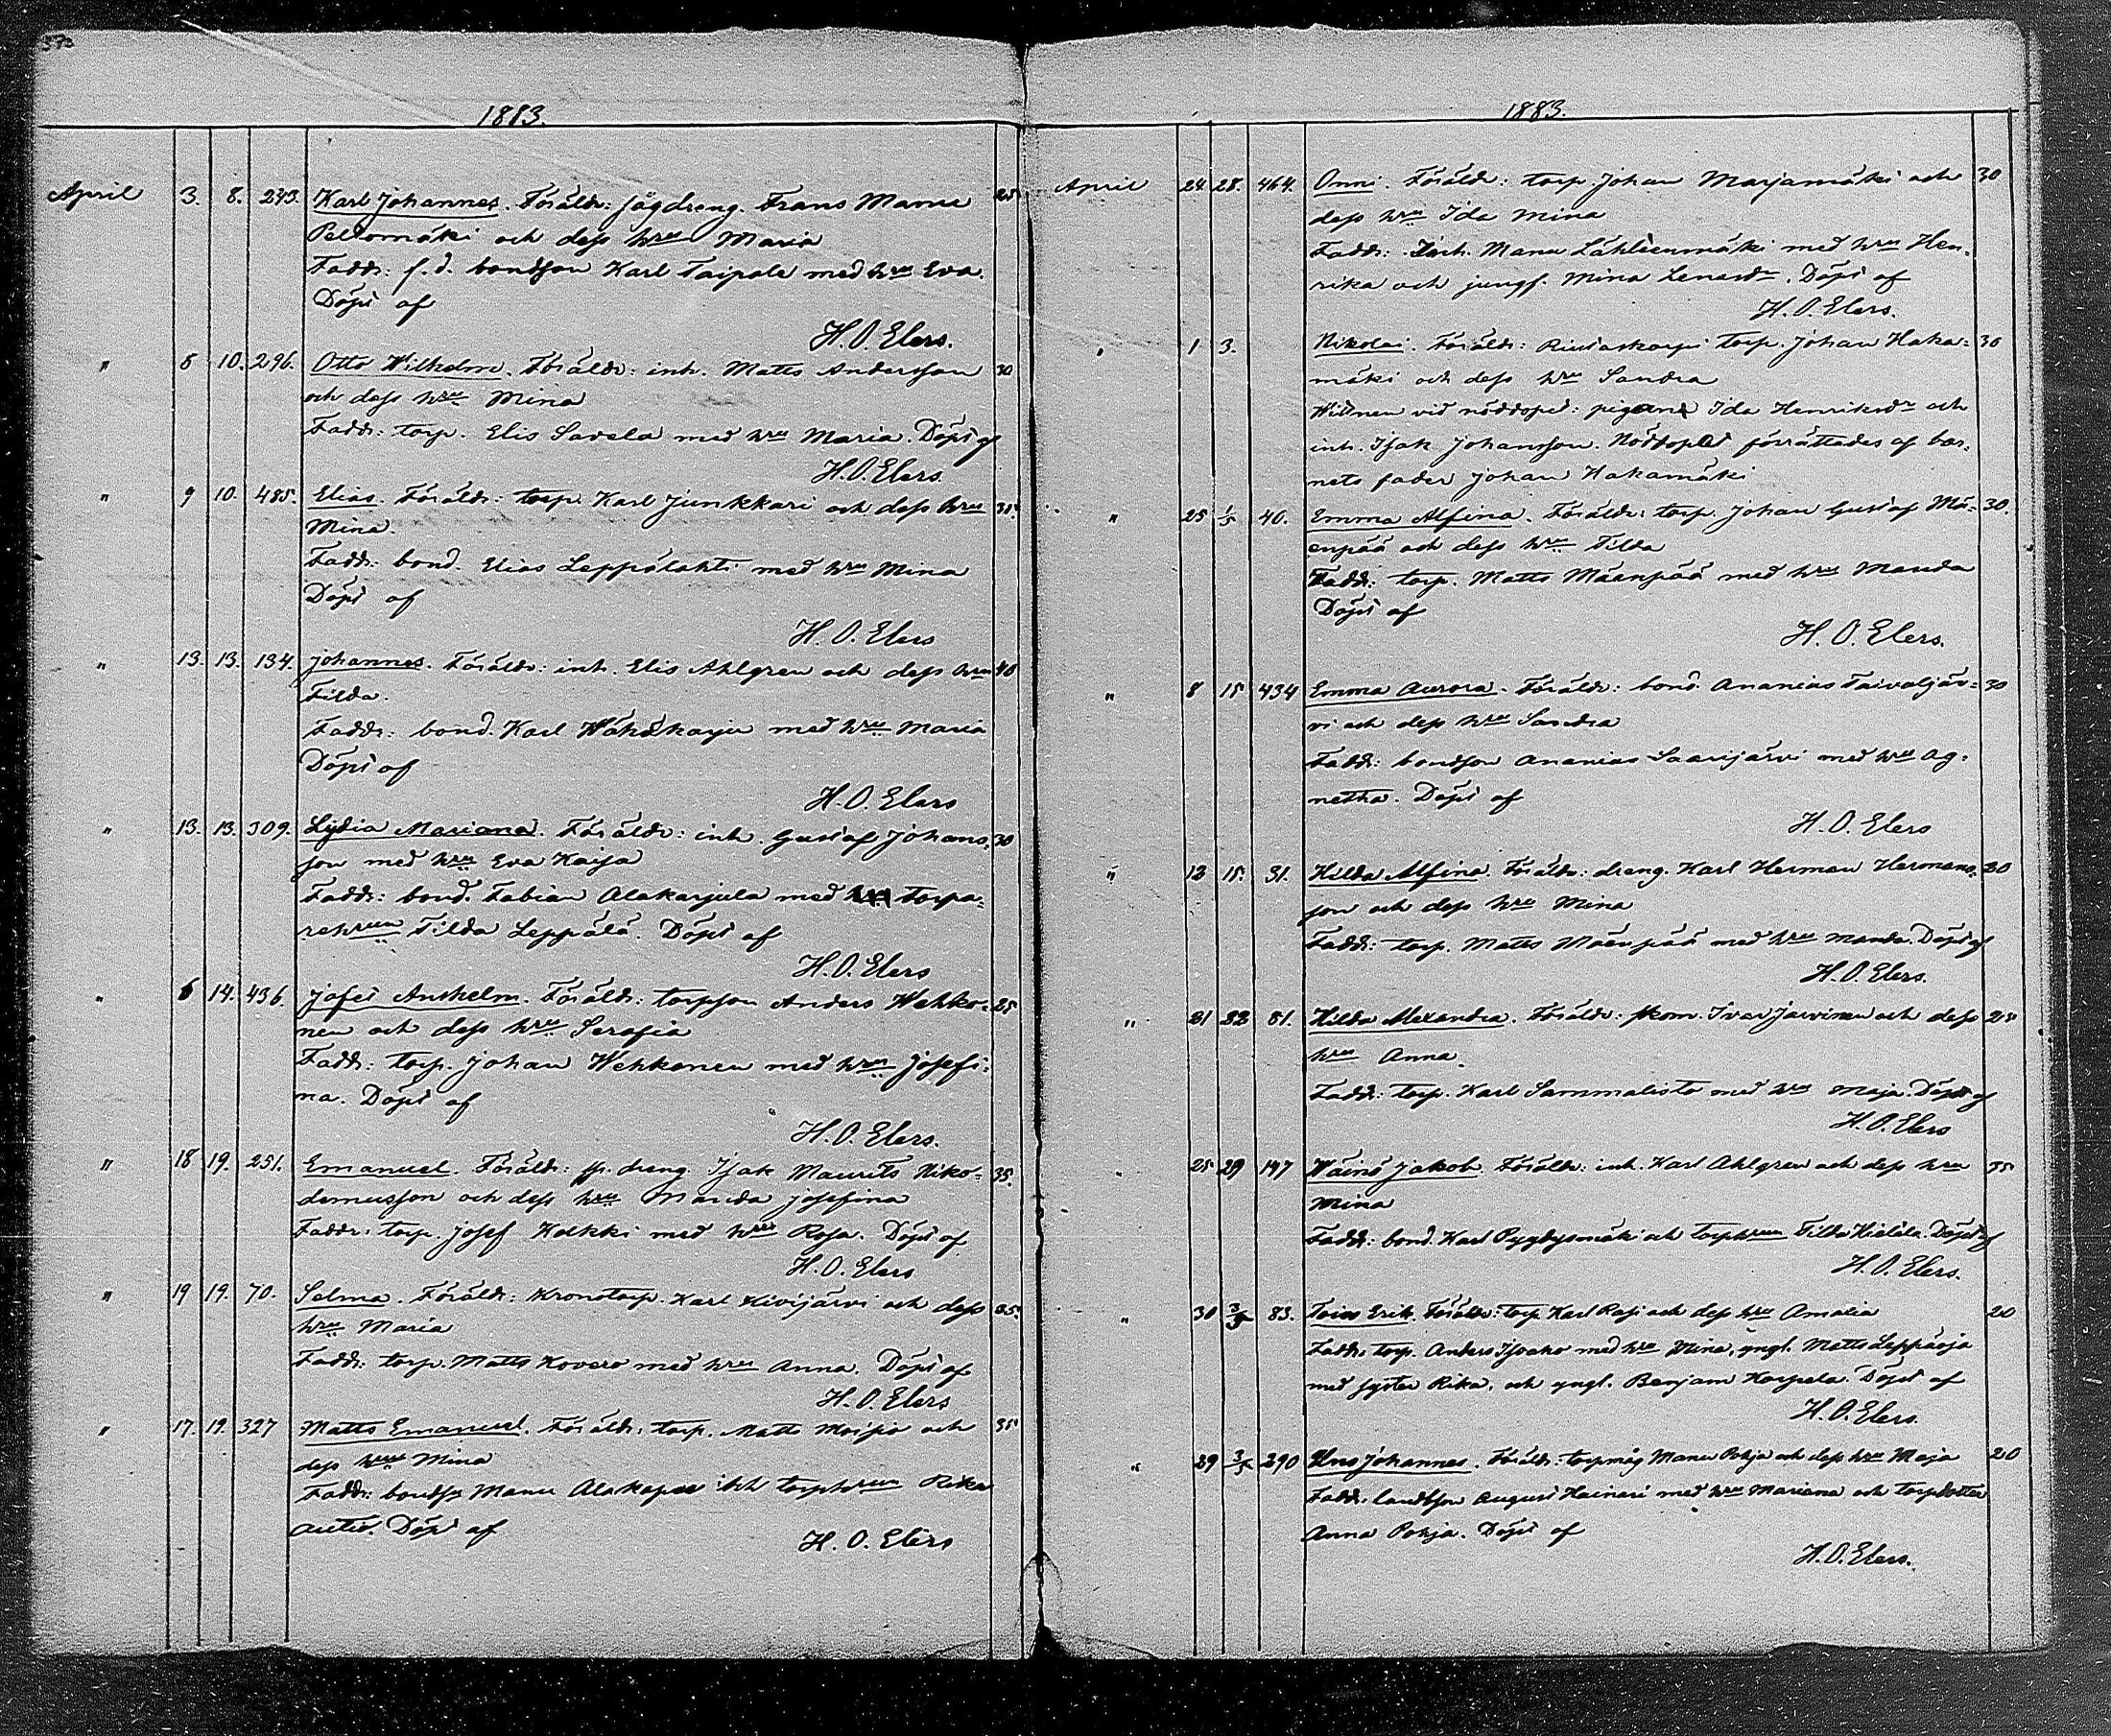 1883.
April 3. 8. 293. Karl Johannes. Föräldr: jägdreng. Frans Manu 25
Peltomäki och dess hru Maria
Faddr: f.d. bondson Karl Taipale med hru Eva.
Döpt af
H. O. Elers.
" 8 10. 296. Otto Wilhelm. Föräldr: inh. Matts Andersson 30
och dess hru Mina
Faddr: torp. Elis Savela med hru Maria. Döpt af
H. O. Elers.
" 9 10. 485. Elias. Föräldr: torp. Karl Junkkari och dess hru 35.
Mina.
Faddr: bond. Elias Leppälahti med hru Mina
Döpt af
H. O. Elers
" 13. 13. 134. Johannes. Föräldr: inh. Elis Ahlgren och dess hru 40
Tilda.
Faddr: bond. Karl Wähäkarju med hru Maria
Döpt af
H. O. Elers
" 13. 13. 309. Lydia Mariana. Föräldr: inh. Gustaf Johans- 30
son med hru Eva Kaija
Faddr: bond. Fabian Alakarjula med torpa-
rehrun Tilda Leppälä. Döpt af
H. O. Elers
" 6 14. 436 Jafet Anshelm. Föräldr: torpson Anders Wehko- 25
nen och dess hru Serafia
Faddr: torp. Johan Wehkonen med hru Josefi-
na. Döpt af
H. O. Elers.
" 18 19. 251. Emanuel. Föräldr: dreng. Isak Maurits Niko- 35.
demusson och dess hru Manda Josefina
Faddr: torp. Josef Kelkki med hru Rosa. Döpt af
H. O. Elers
" 19 19. 70. Selma. Föräldr: Kronotorp. Karl Kivijärvi och dess 35.
hru Maria
Faddr: torp. Matts Kovero med hru Anna. Döpt af
H. O. Elers
" 17. 19. 327 Matts Emanuel. Föräldr: torp. Matts Moisio och 35
dess hru Mina
Faddr: bondson Manu och torphrun Rika
Döpt af
H. O. Elers
1883.
April 24. 28. 464. Onni. Föräldr: torp. Johan Marjamäki och 30
dess hru Ida Mina
Faddr: Manu Lähteenmäki med hru Hen-
rika och jungf. Mina Lenardsdr. Döpt af
H. O. Elers.
" 1 3. Nikolai. Föräldr: torp. Johan Haka- 30
mäki och dess hru Sandra
Wittnen vid nöddopet: pigan Ida Henriksdr och
inh. Isak Johansson. Nöddopet förrättades af bar-
nets fader Johan Hakamäki
" 25 1/5 40. Emma Alfina. Föräldr: torp. Johan Gustaf Mä- 30.
enpää och dess hru Tilda
Faddr: torp. Matts Mäenpää med hru Manda
Döpt af
H. O. Elers.
" 8 15 434 Emma Aurora. Föräldr: bond. Ananias Taivaljär- 30
vi och dess hru Sandra
Faddr: bondson Ananias Saarijärvi med hru Ag-
netha. Döpt af
H. O. Elers
" 13 15. 31. Hilda Alfina. Föräldr: dreng. Karl Herman Hermans- 30
son och dess hru Mina
Faddr: torp. Matts Mäenpää med hru Manda. Döpt af
H. O. Elers.
" 21 22 81. Hilda Alexandra. Föräldr: skom. Ivar Jarvinen och dess 25
hru Anna.
Faddr: torp. Karl Sammalisto med hru Maja. Döpt af
H. O. Elers
" 25 29 147 Wäinö Jakob. Föräldr: inh. Karl Ahlgren och dess hru 35
Mina
Faddr: bond. Karl Pyydysmäki och torphrun Tilda Hietala. Döpt af
H. O. Elers.
" 30 3/5 83. Toivo Erik. Föräldr: torp. Karl Rasi och dess hru Amalia 20
Faddr: torp. Anders Isoaho med hru Mina, yngl. Matts Leppäoja
med syster Rika, och yngl. Benjam Korpela. Döpt af
H. O. Elers.
" 29 3/5 290 Uno Johannes. Föräldr: torpmåg Manu Pohja och dess hru Maja 20
Faddr: landtson August Hainari med hru Mariana och torpdotter
Anna Pohja. Döpt af
H. O. Elers.